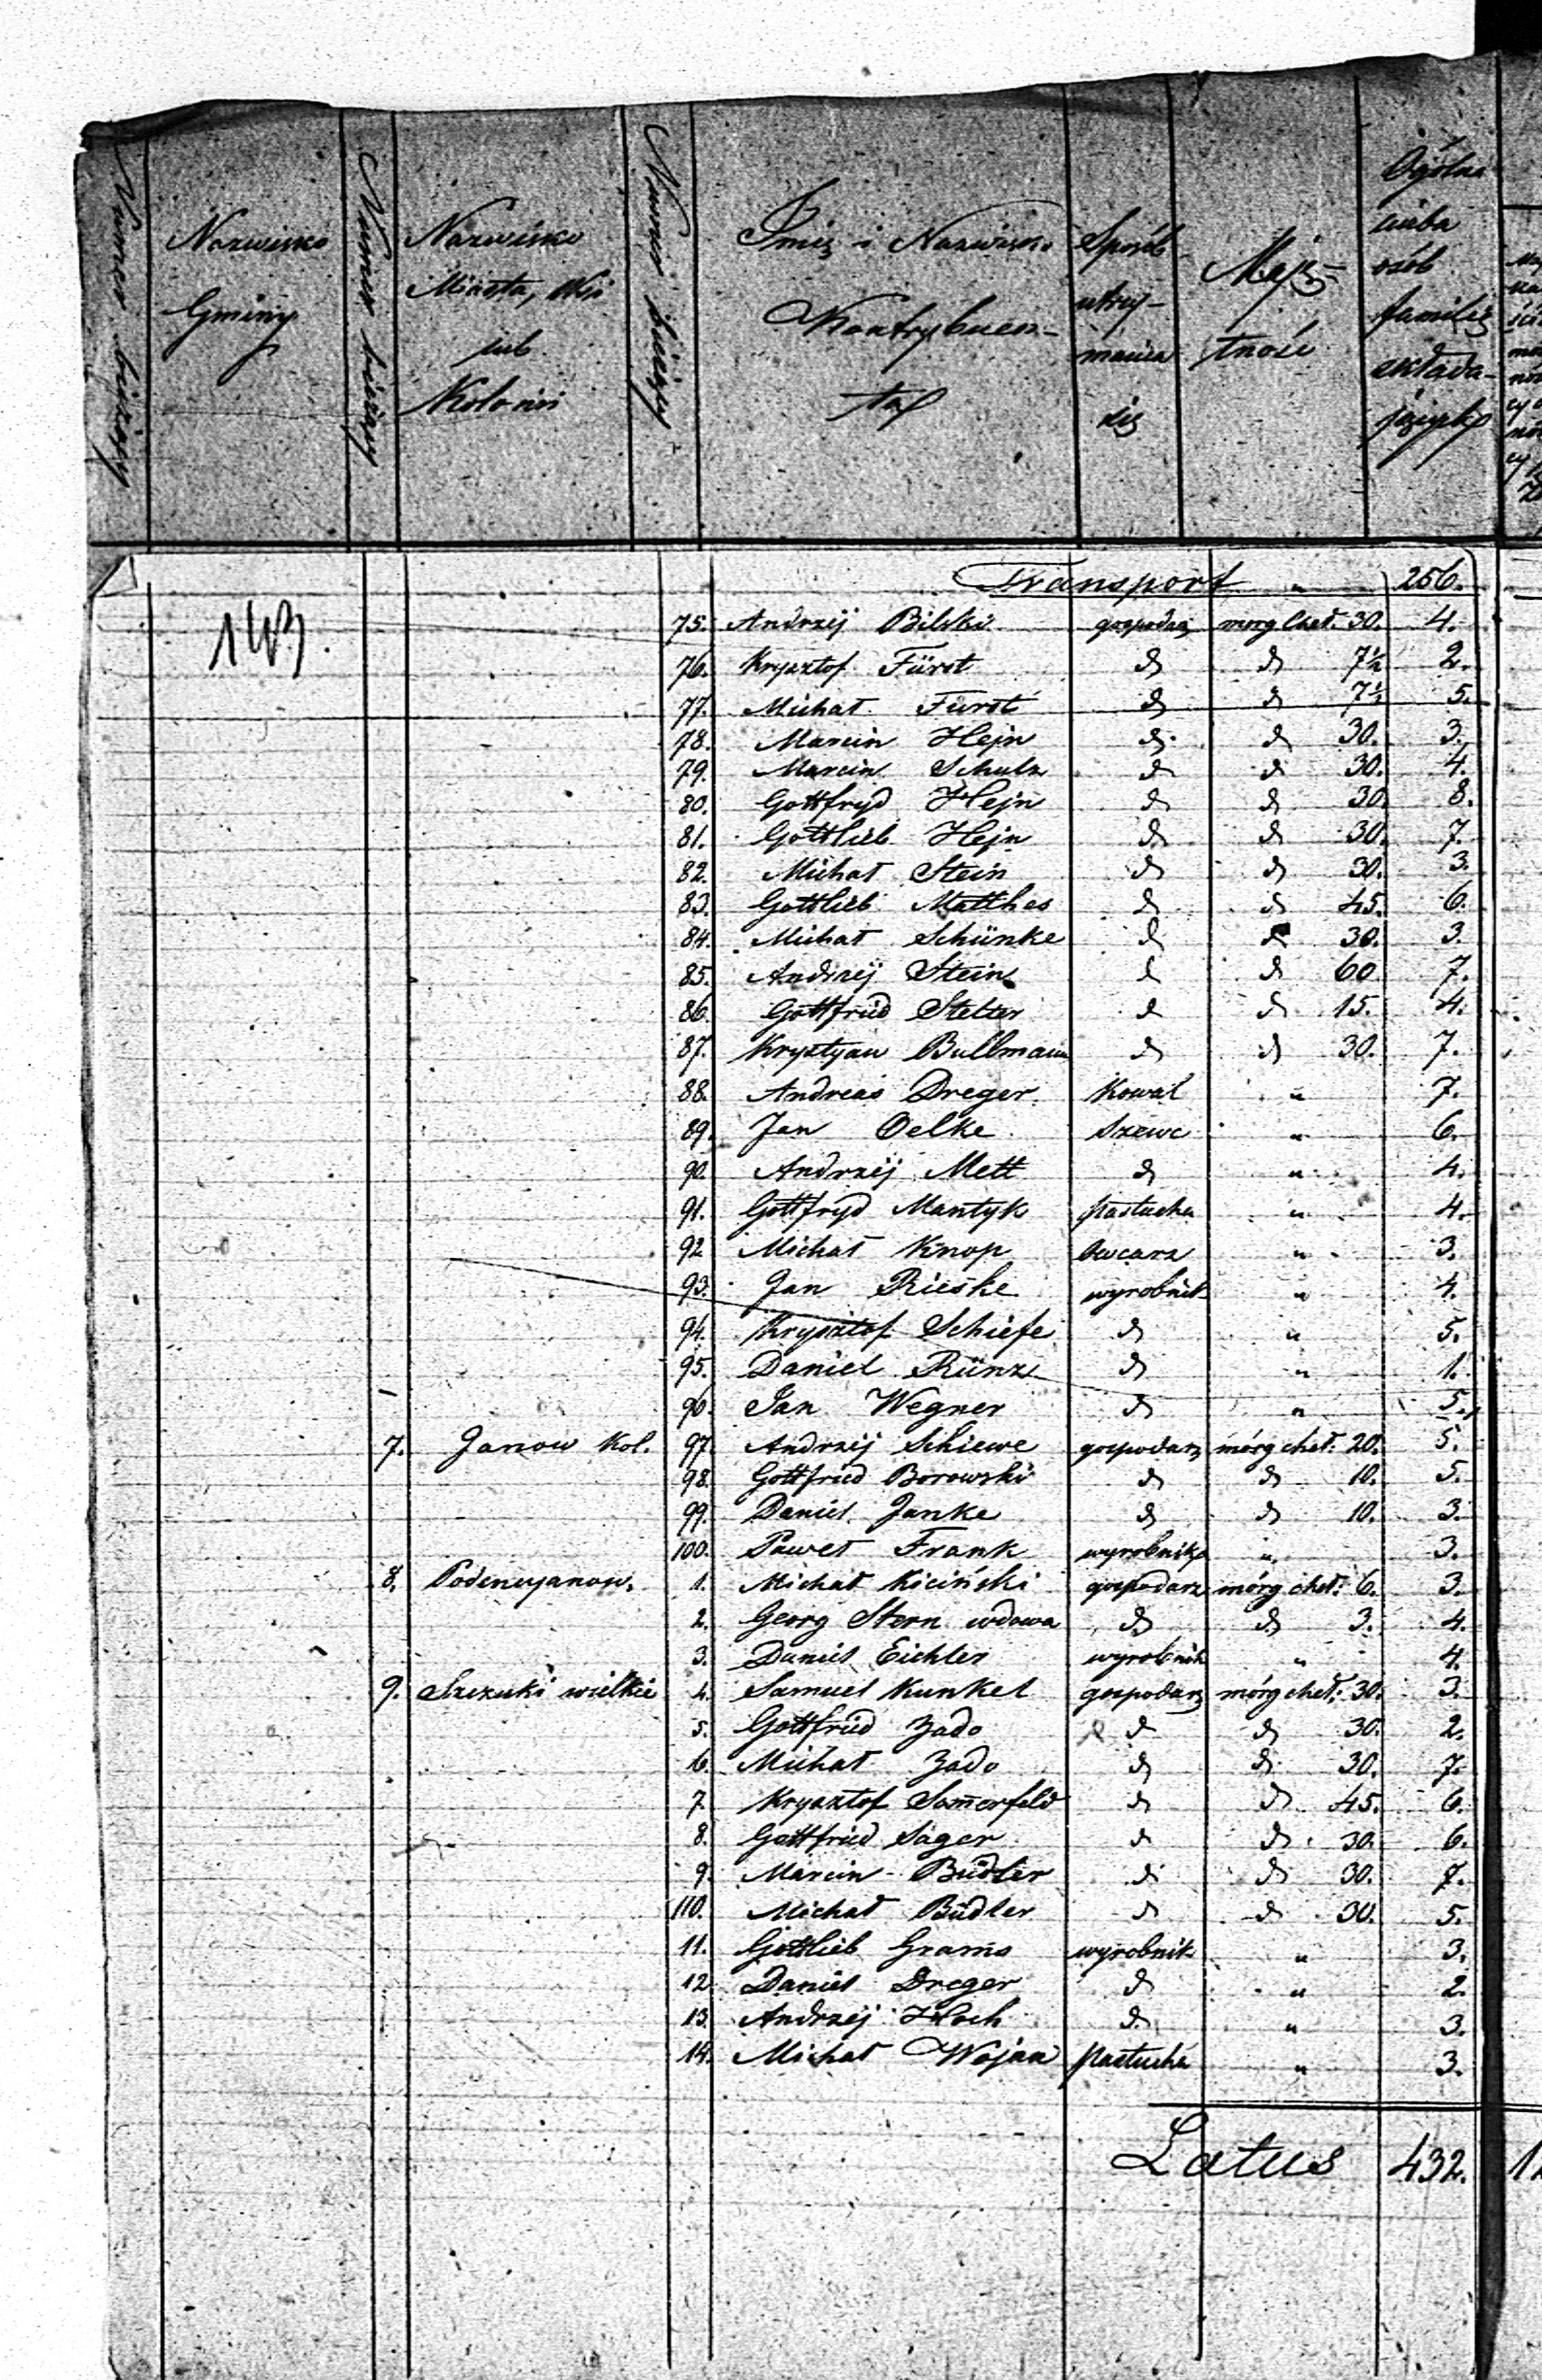 Numer bieżący
Nazwisko Gminy
Numer bieżący
Nazwisko Miasta, Wsi lub Kolonii
Numer bieżący
Imię i Nazwisko Kontrybuen- ta
Sposób utrzy- mania się
Mają- tność
Ogólna liczba osób familię składa- jących
Transport " 256.
143.
75. Andrzej Bilski gospodarz morg cheł. 30. 4.
76. Krysztof Fürst d 7½ 2.
77. Michał Fürst d d 7½ 5.
78. Marcin Hejn d d 30. 3.
79. Marcin Schulz d d 30. 4.
80. Gottfryd Hejn d d 30 8.
81. Gottlieb Hejn d d 30. 7.
82. Michał Stein d d 30. 3.
83. Gottlieb Matthes d d 45. 6.
84. Michał Schünke d d 30. 3.
85. Andrzej Stein d d 60 7.
86. Gottfried Stelter d d 15. 4.
87. Krystyan Bullmann d d 30. 7.
88. Andreas Dreger Kowal " 7.
89. Jan Oelke Szewc " 6.
90. Andrzej Mett d " 4.
91. Gottfryd Mantyk Pastucha " 4.
92 Michał Knop Owcarz " 3.
93. Jan Rieske wyrobnik " 4.
94. Krysztof Schiefe d " 5.
95. Daniel Rünz d " 1.
96. Jan Wegner d " 5.
7. Janow Kol. 97. Andrzej Schiewe gospodarz mórg cheł. 20. 5.
98. Gottfried Borowski d d 10. 5.
99. Daniel Janke d d 10. 3.
100. Paweł Frank wyrobnik " 3.
8. 1. Michał Kiciński gospodarz mórg cheł. 6. 3.
2. Georg Stern wdowa d d 3. 4.
3. Daniel Eichler wyrobnik " 4.
9. Szczuki wielkie 4. Samuel Kunkel gospodarz mórg cheł. 30. 3.
5. Gottfried Zado d d 30. 2.
6. Michał Zado d d 30. 7.
7 Krysztof Somerfeld d d 45. 6.
8. Gottfried Sager d d 30. 6.
9. Marcin Büdler d d 30. 7.
110. Michał Büdler d d 30. 5.
11. Gottlieb Grams wyrobnik " 3.
12 Daniel Dreger d " 2.
13. Andrzej Hoch d " 3.
14. Michał Wojan Pastucha " 3.
Latus 432.